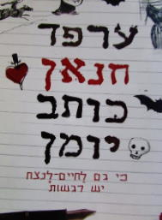 ערפד
חנאן
כותב
יומן
כי גם לחיים-לנצח
יש רגשות